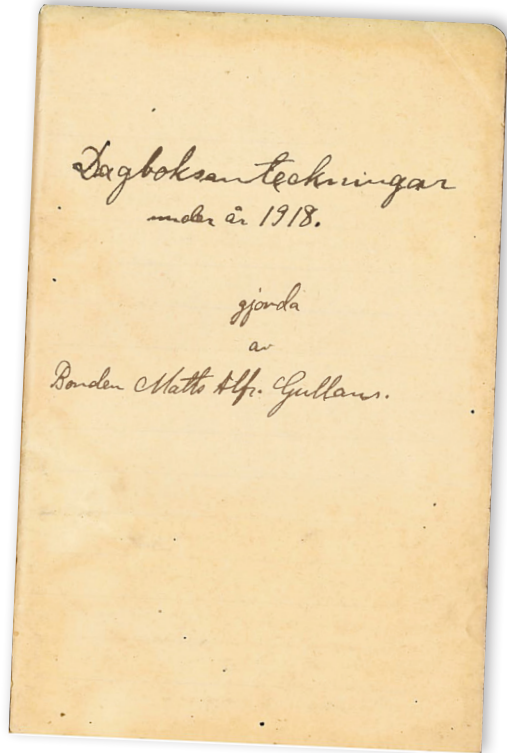 Dagboksanteckningar
under år 1918.
gjorda
av
Bonden Matts Alfr. Gullans.